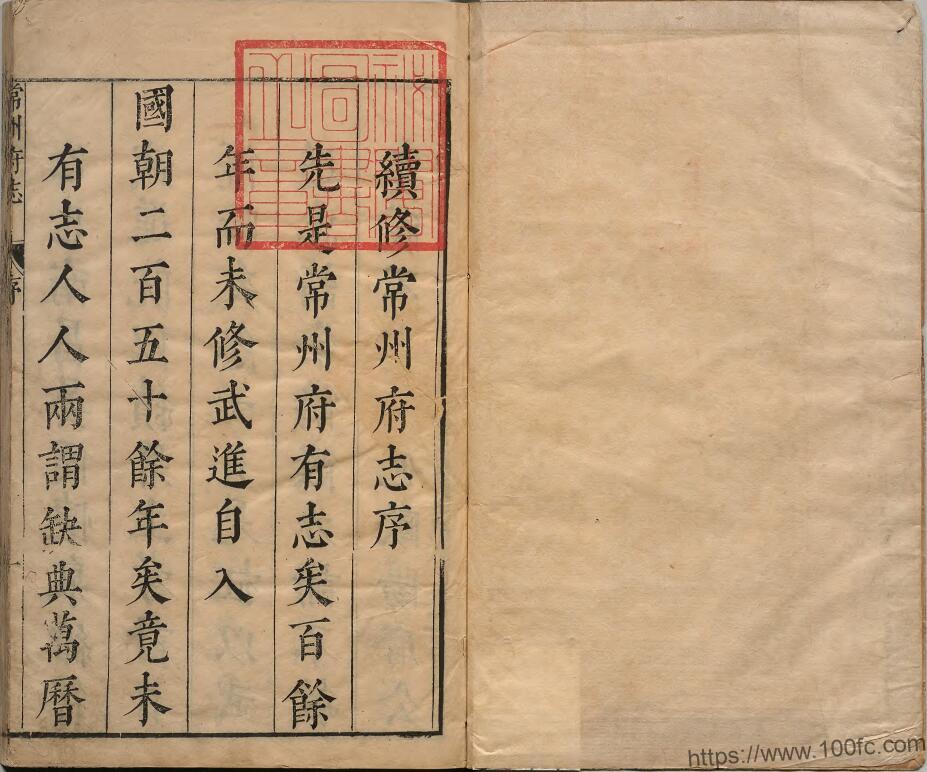 續修常州府志序
先是常州府有志矣百餘
年而未修武進自入
國朝二百五十餘年矣竟未
有志人人兩謂缺典萬曆
常州府志
序
一
https://www.100fc.com